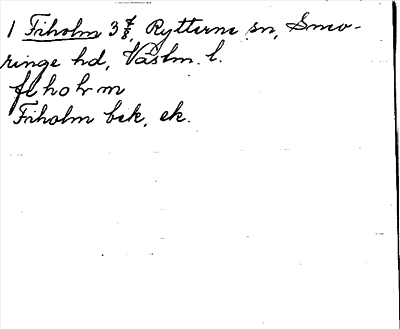 1 Friholm 3 7/8, Rytterne sn, Snev-
ringe hd, Västm. l.
Friholm bek. ek.